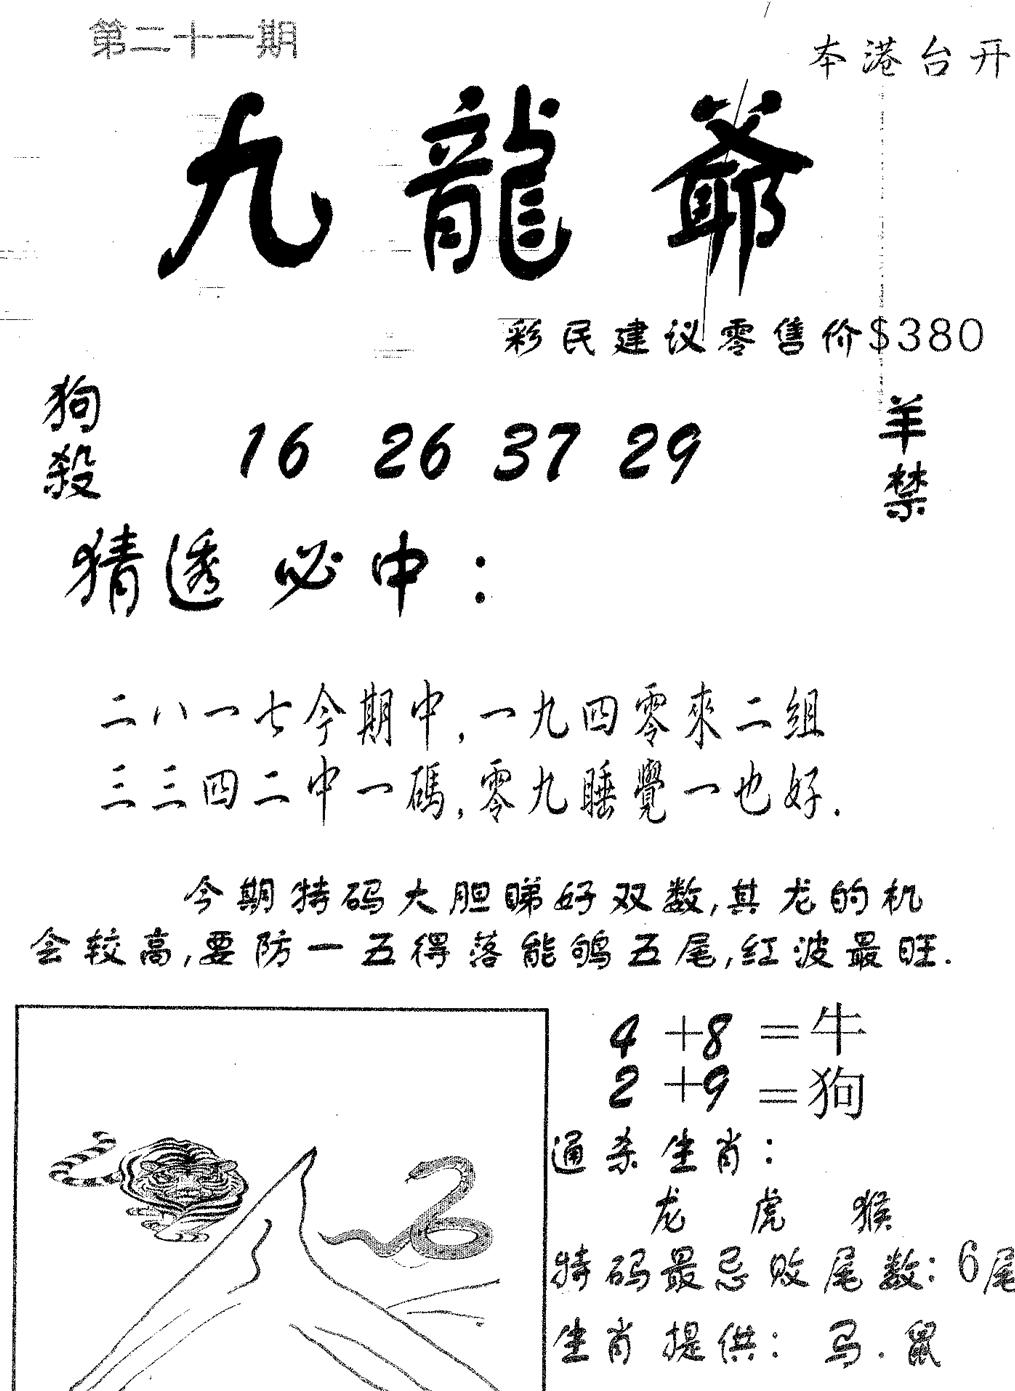 第二十一期
本港台开
九龍爺
彩民建议零售价$380
狗殺
16 26 37 29
羊禁
猜透必中：
二八一七今期中,一九四零來二组
三三四二中一碼,零九睡覺一也好.
今期特码大胆睇好双数,其龙的机
会较高,要防一五得落能鸲五尾,红波最旺.
4+8=牛
2+9=狗
通杀生肖：
龙 虎 猴
特码最忌败尾数：6尾
生肖提供：马.鼠